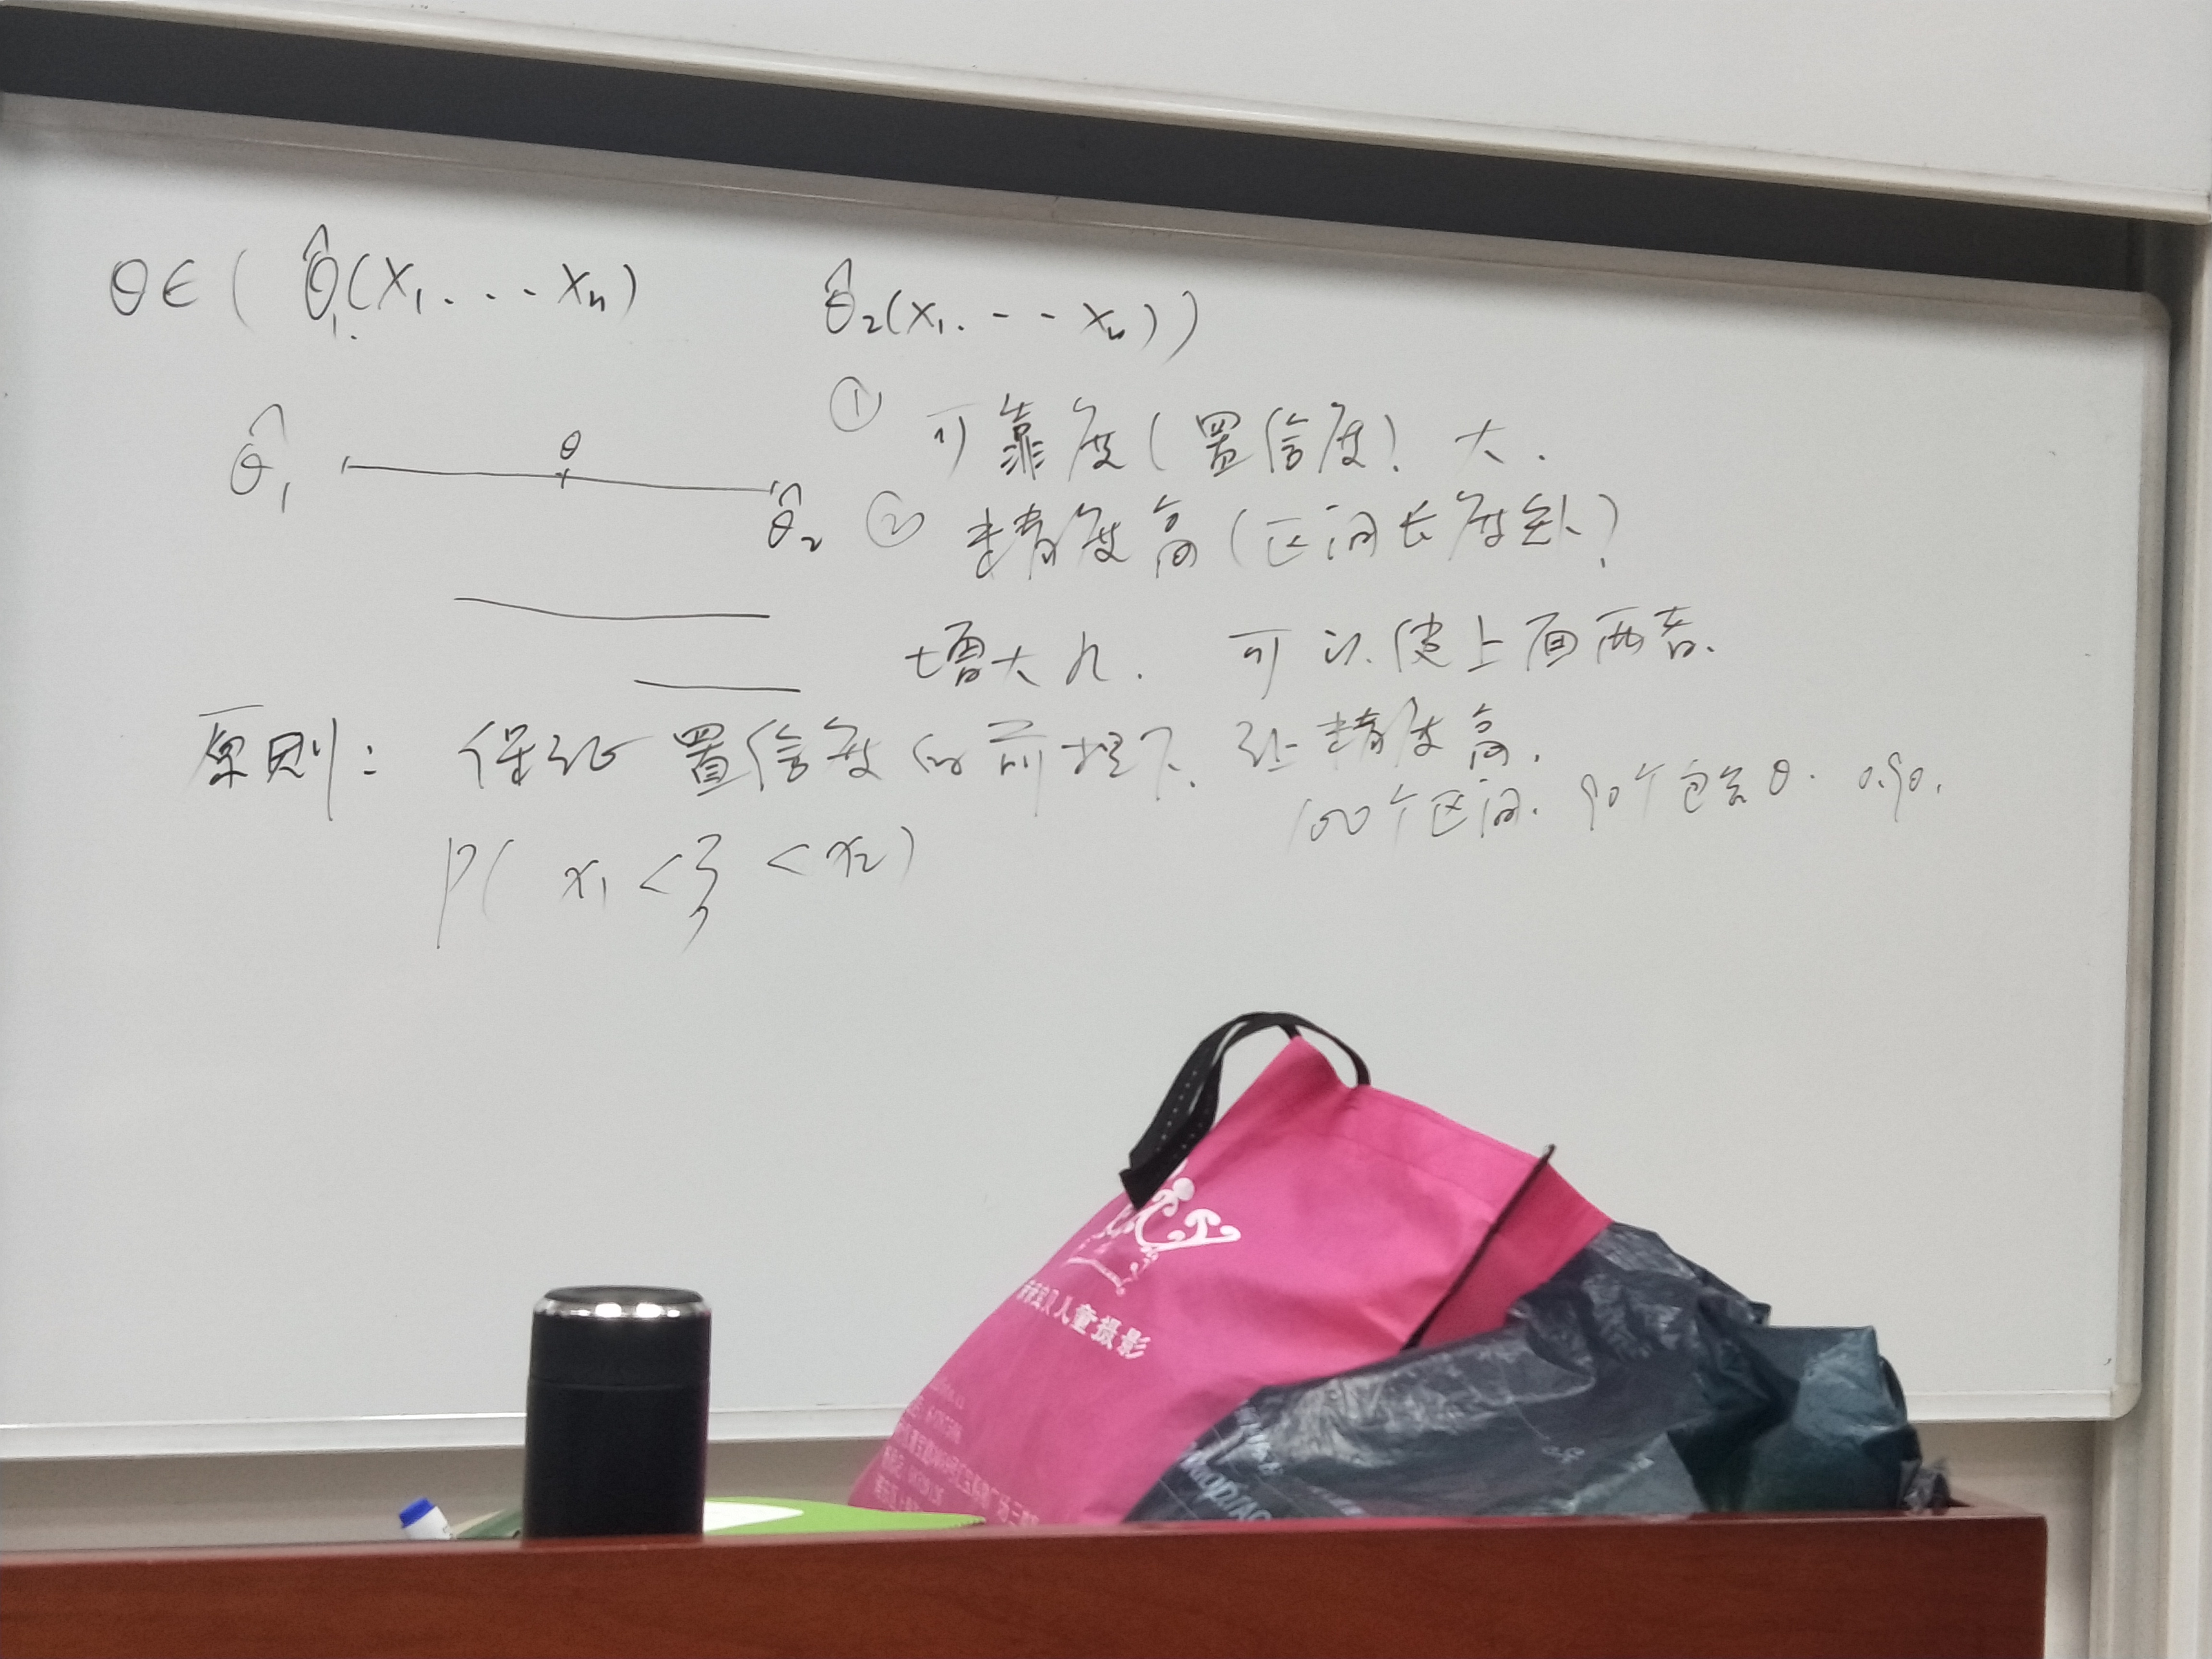 θ∈( θ̂₁(X₁...Xₙ) θ̂₂(X₁...Xₙ))
θ̂₁ θ θ̂₂
① 可靠度(置信度)大.
② 精度高(区间长度短)
增大n. 可以使上面两者.
原则: 保证置信度的前提下, 让精度高.
100个区间. 90个包含θ. 0.90.
P( x₁ < ξ < x₂)
儿童摄影